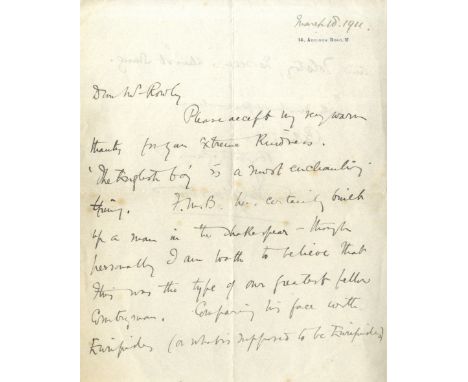 March 18. 1911.
14, Addison Road, W
Dear Mr Rowley
Please accept my very warm
thanks for your extreme kindness.
'The English boy' is a most enchanting
thing. F.M.B. has certainly built
up a man in the Shakespear – though
personally I am loath to believe that
this was the type of our greatest fellow
Countryman. Comparing his face with
Euripides (or what is supposed to be Euripides)